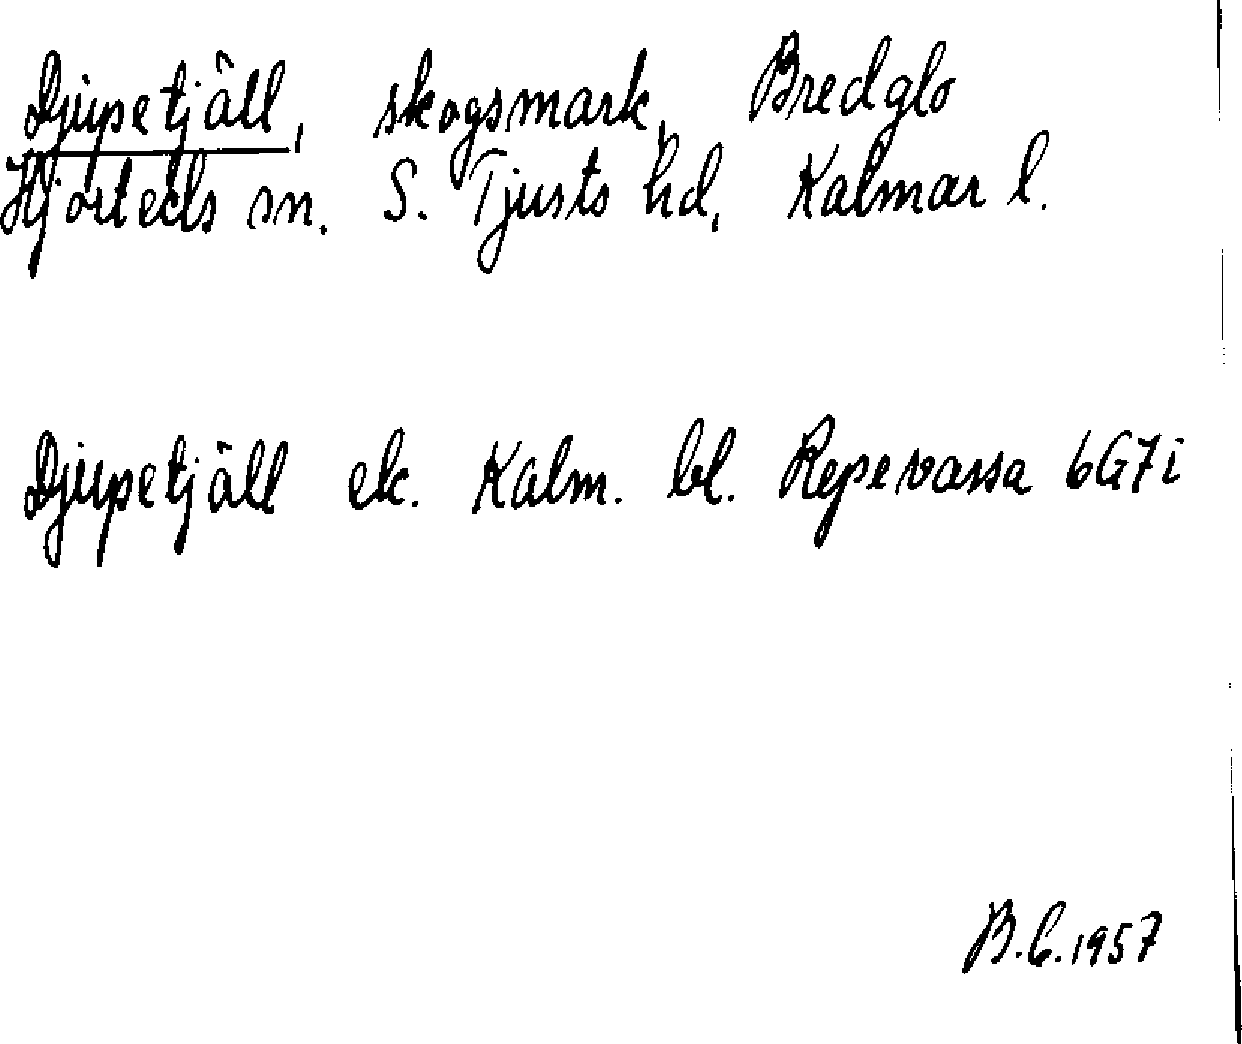 Djupetjäll, skogsmark, Bredglo
Hjorteds sn. S. Tjusts hd, Kalmar l.
Djupetjäll ek. Kalm. bl. Repevassa 6G7i
B.C.1957